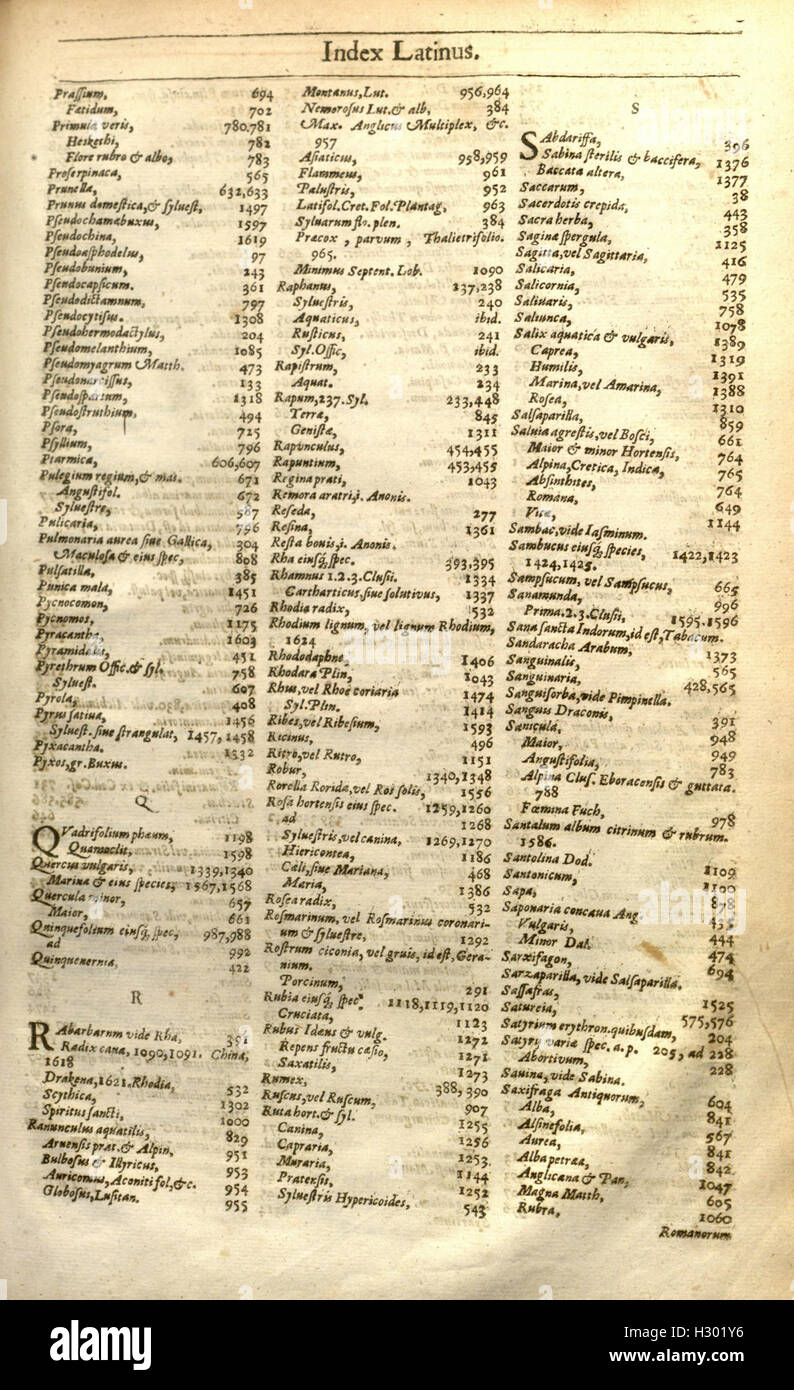 Index Latinus.
Prassium, 694
Fœtidum, 702
Primula veris, 780.781
Heskethi, 782
Flore rubro & albo, 783
Proserpinaca, 565
Prunella, 632,633
Prunus domestica,& sylvest, 1497
Pseudochamabuxus, 1597
Pseudochina, 1619
Pseudoasphodelus, 97
Pseudobunium, 243
Pseudocapsicum. 361
Pseudodictamnum, 797
Pseudocytisus. 1308
Pseudohermodactylus, 204
Pseudomelanthium, 1085
Pseudomyagrum Matth. 473
Pseudonarcissus, 133
Pseudospartum, 1318
Pseudostruthium, 494
Psora, 725
Psyllium, 796
Ptarmica, 606,607
Pulegium regium,& mas. 671
Angustifol. 672
Sylvestre, 587
Pulicaria, 796
Pulmonaria aurea sive Gallica, 304
Maculosa & eius spec, 808
Pulsatilla, 385
Punica mala, 1451
Pycnocomon, 726
Pycnomos, 1175
Pyracantha, 1603
Pyramidalis, 451
Pyrethrum Offic.& syl. 758
Sylvest. 607
Pyrola, 408
Pyrus sativa, 1456
Sylvest. sive strangulat, 1457,1458
Pyxacantha. 1332
Pyxos,gr.Buxus.
Q
QVadrifolium phæum, 1198
Quamoclit, 1598
Quercus vulgaris, 1339,1340
Marina & eius species, 1567,1568
Quercula minor, 657
Maior, 661
Quinquefolium eiusq; spec, 987,988
ad 992
Quinquenervia, 422
R
RAbarbarum vide Rha, 391
Radix cana, 1090,1091. China,
1618
Drakena,1621.Rhodia, 532
Scythica, 1302
Spiritus sancti, 1000
Ranunculus aquatilis, 829
Arvensis prat.& Alpin, 951
Bulbosus & Illyricus, 953
Auricomus, Aconiti fol,&c. 954
Globosus,Lusitan. 955
Montanus, Lut. 956,964
Nemorosus Lut.& alb, 384
Max. Anglicus Multiplex, &c.
957
Asiaticus, 958,959
Flammeus, 961
Palustris, 952
Latifol.Cret.Fol.Plantag, 963
Sylvarum flo.plen. 384
Præcox , parvum , Thalietrifolio.
965.
Minimus Septent. Lob. 1090
Raphanus, 237,238
Sylvestris, 240
Aquaticus, ibid.
Rusticus, 241
Syl.Offic, ibid.
Rapistrum, 233
Aquat. 234
Rapum,237.Syl. 233,448
Terræ, 845
Genistæ, 1311
Rapunculus, 454,455
Rapuntium, 453,455
Regina prati, 1043
Remora aratri,i. Anonis.
Reseda, 277
Resina, 1361
Resta bovis,i. Anonis.
Rha eiusq; spec. 393,395
Rhamnus 1.2.3.Clusii. 1334
Cartharticus,sive solutivus, 1337
Rhodia radix, 532
Rhodium lignum, vel lignum Rhodium,
1624
Rhododaphne 1406
Rhodara Plin, 1043
Rhus,vel Rhoe coriaria 1474
Syl.Plin. 1414
Ribes,vel Ribesium, 1593
Ricinus, 496
Ritro,vel Rutro, 1151
Robur, 1340,1348
Rorella Rorida, vel Ros solis, 1556
Rosa hortensis eius spec. 1259,1260
ad 1268
Sylvestris,vel canina, 1269,1270
Hiericontea, 1186
Cæli,sive Mariana, 468
Maria, 1386
Rosea radix, 532
Rosmarinum, vel Rosmarinus coronari-
um & sylvestre, 1292
Rostrum ciconia, vel gruis, id est, Gera-
nium.
Porcinum, 291
Rubia eiusq; spec. 1118,1119,1120
Cruciata, 1123
Rubus Idæus & vulg. 1272
Repens fructu casio, 1271
Saxatilis, 1273
Rumex, 388, 390
Ruscus, vel Ruscum, 907
Ruta hort.& syl. 1255
Canina, 1256
Capraria, 1253.
Muraria, 1144
Pratensis, 1252
Sylvestris Hypericoides, 543
S
SAbdariffa, 396
Sabina sterilis & baccifera, 1376
Baccata altera, 1377
Saccarum, 38
Sacerdotis crepida, 443
Sacra herba, 358
Sagina spergula, 1125
Sagitta,vel Sagittaria, 416
Salicaria, 479
Salicornia, 535
Salivaris, 758
Saliunca, 1078
Salix aquatica & vulgaris, 1389
Caprea, 1319
Humilis, 1391
Marina, vel Amarina, 1388
Rosea, 1310
Salsaparilla, 859
Salvia agrestis, vel Bosci, 661
Maior & minor Hortensis, 764
Alpina,Cretica, Indica, 765
Absinthites, 764
Romana, 649
Vitæ, 1144
Sambac,vide Iasminum.
Sambucus eiusq; species, 1422,1423
1424,1425.
Sampsucum, vel Sampsucus, 665
Sanamunda, 996
Prima.2.3.Clusii, 1595.1596
Sana sancta Indorum,id est,Tabacum.
Sandaracha Arabum, 1373
Sanguinalis, 565
Sanguinaria, 428,565
Sanguisorba,vide Pimpinella.
Sanguis Draconis, 391
Sanicula, 948
Maior, 949
Angustifolia, 783
Alpina Clus. Eboracensis & guttata.
788
Fœmina Fuch, 978
Santalum album citrinum & rubrum.
1586.
Santolina Dod. 1109
Santonicum, 1100
Sapa, 878
Saponaria concava Ang. 435
Vulgaris, 444
Minor Dal. 474
Sarxifagon, 694
Sarzaparilla, vide Salsaparilla.
Sassafras, 1525
Satureia, 575,576
Satyrium erythron.quibusdam, 204
Satyry varia spec.a.p. 205, ad 228
Abortivum, 228
Savina,vide Sabina.
Saxifraga Antiquorum, 604
Alba, 841
Alsinefolia, 567
Aurea, 841
Alba petræa, 842
Anglicana & Pan, 1047
Magna Matth, 605
Rubra, 1060
Romanorum
alamy
alamy stock photo
H301Y6
www.alamy.com